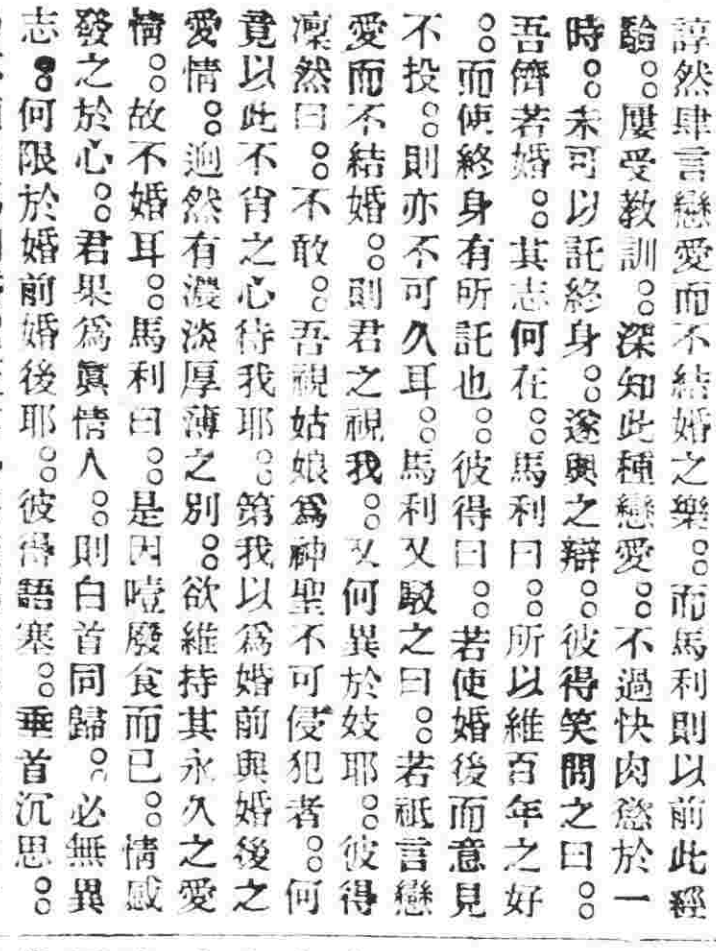 諄然肆言戀愛而不結婚之樂。而馬利則以前此經
驗。屢受教訓。深知此種戀愛。不過快肉慾於一
時。未可以託終身。遂與之辯。彼得笑問之曰。
吾儕若婚。其志何在。馬利曰。所以維百年之好
。而使終身有所託也。彼得曰。若使婚後而意見
不投。則亦不可久耳。馬利又駁之曰。若祇言戀
愛而不結婚。則君之視我。又何異於妓耶。彼得
凜然曰。不敢。吾視姑娘爲神聖不可侵犯者。何
竟以此不肯之心待我耶。第我以爲婚前與婚後之
愛情。逈然有濃淡厚薄之別。欲維持其永久之愛
情。故不婚耳。馬利曰。是因噎廢食而已。情感
發之於心。君果爲眞情人。則白首同歸。必無異
志。何限於婚前婚後耶。彼得語塞。垂首沉思。